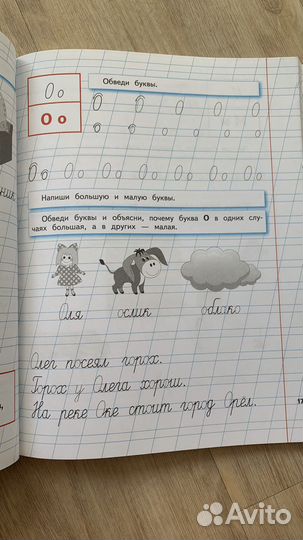 О о
Обведи буквы.
О О О О О
О о
о о о о о о
Оо Оо Оо Оо Оо Оо Оо
Напиши большую и малую буквы.
Обведи буквы и объясни, почему буква О в одних слу-
чаях большая, а в других — малая.
ник
Оля ослик облако
Олег посеял горох.
Горох у Олега хорош.
На реке Оке стоит город Орёл.
17
Avito